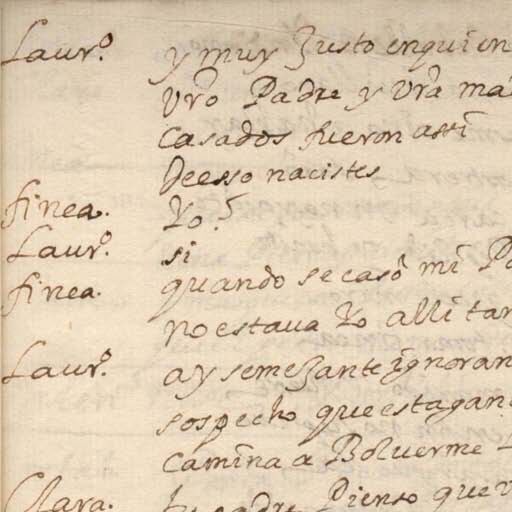 Laurº. y muy Justo en quien
Vrõ Padre y Vrã ma
Casados fueron assi
De esso nacistes
finea. Yo?
Laurº. si
finea. quando se casó mi Pa
no estaua Yo alli tan
Laurº. ay semejante ignoran
sospecho que esta gana
Camina a Boluerme
Clara. Pienso que